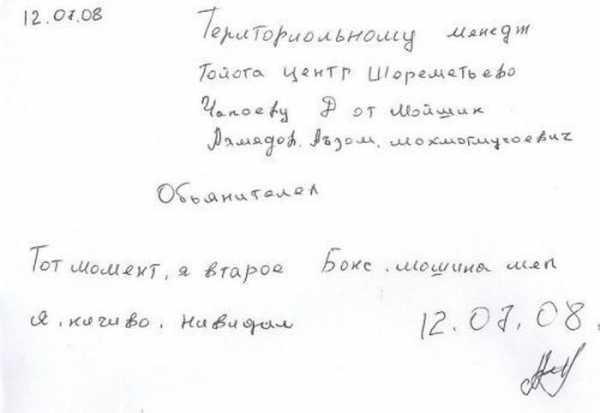 12.07.08
Териториольному менедж
Тойота центр Шореметьево
Чапоеву Д от Мойшик
Ахмадор. Аъзом. мохмотмусоевич
Обьянителен
Тот момент, я втарое Бокс. мошина мел
я. ничиво. нивидал
12.07.08.